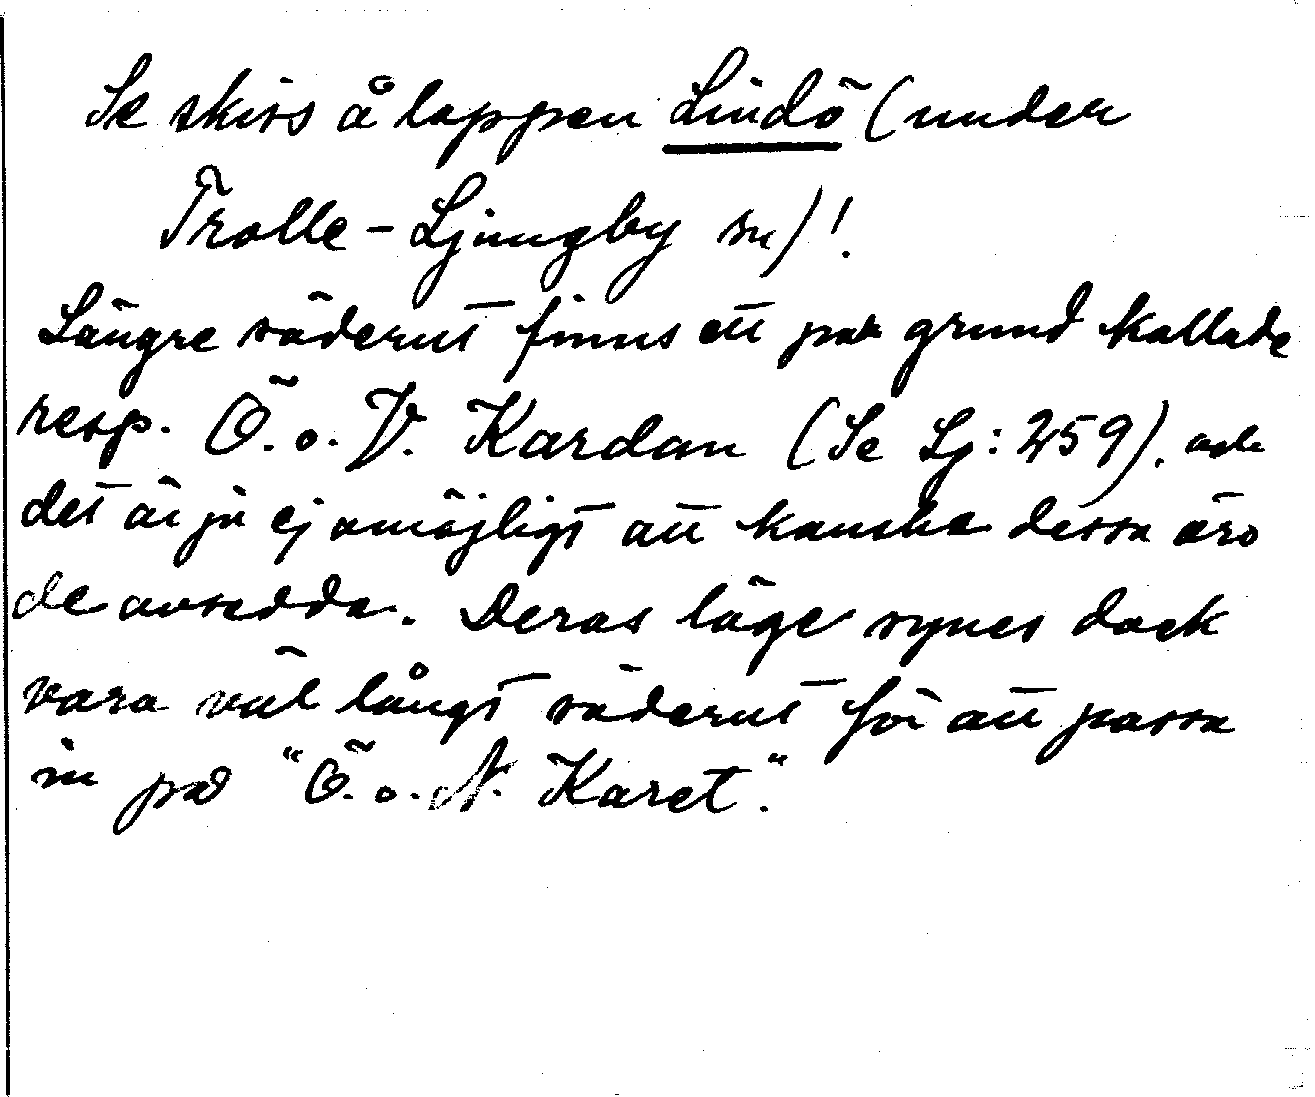 Se skiss å lappen Lindö (under
Trolle-Ljungby sn)!
Längre söderut finns ett par grund kallade
resp. Ö. o. V. Kardan (Se Lj: 259). och
det är ju ej omöjligt att kanske dessa äro
de avsedda. Deras läge synes dock
vara väl långt söderut för att passa
in på "Ö. o. N. Karet".